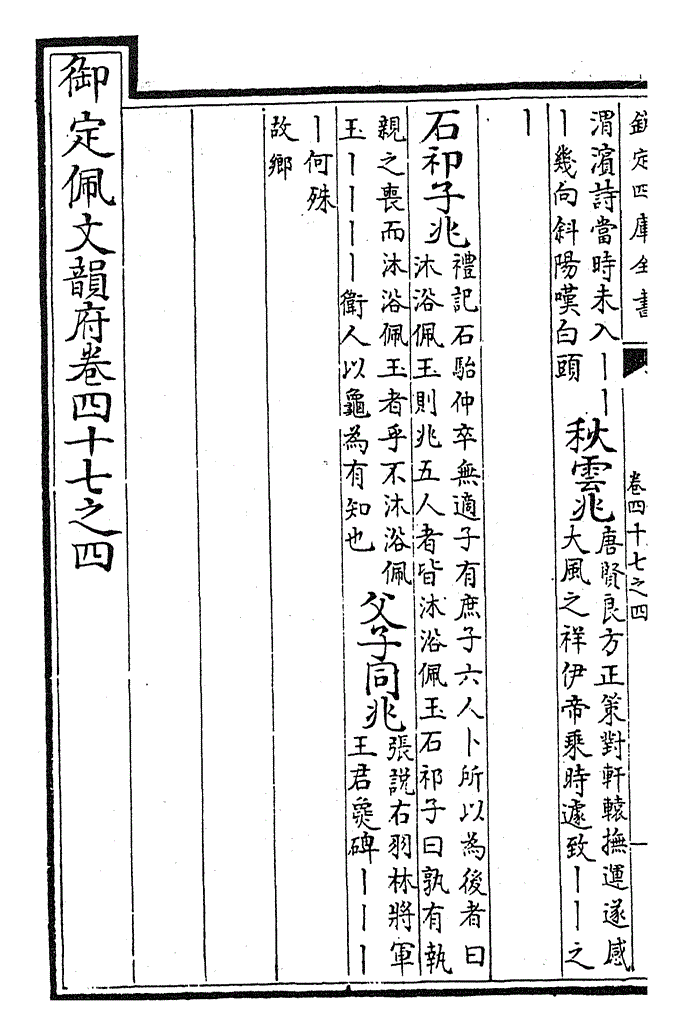 欽定四庫全書
卷四十七之四
渭濱詩當時未入丨丨
丨幾向斜陽嘆白頭
秋雲兆
唐賢良方正策對軒轅撫運遂感
大風之祥伊帝乘時遽致丨丨之
丨
石祁子兆
禮記石駘仲卒無適子有庶子六人卜所以為後者曰
沐浴佩玉則兆五人者皆沐浴佩玉石祁子曰孰有執
親之喪而沐浴佩玉者乎不沐浴佩
玉丨丨丨丨衛人以龜為有知也
父子同兆
張說右羽林將軍
王君㚟碑丨丨丨
丨何殊
故鄉
御定佩文韻府卷四十七之四